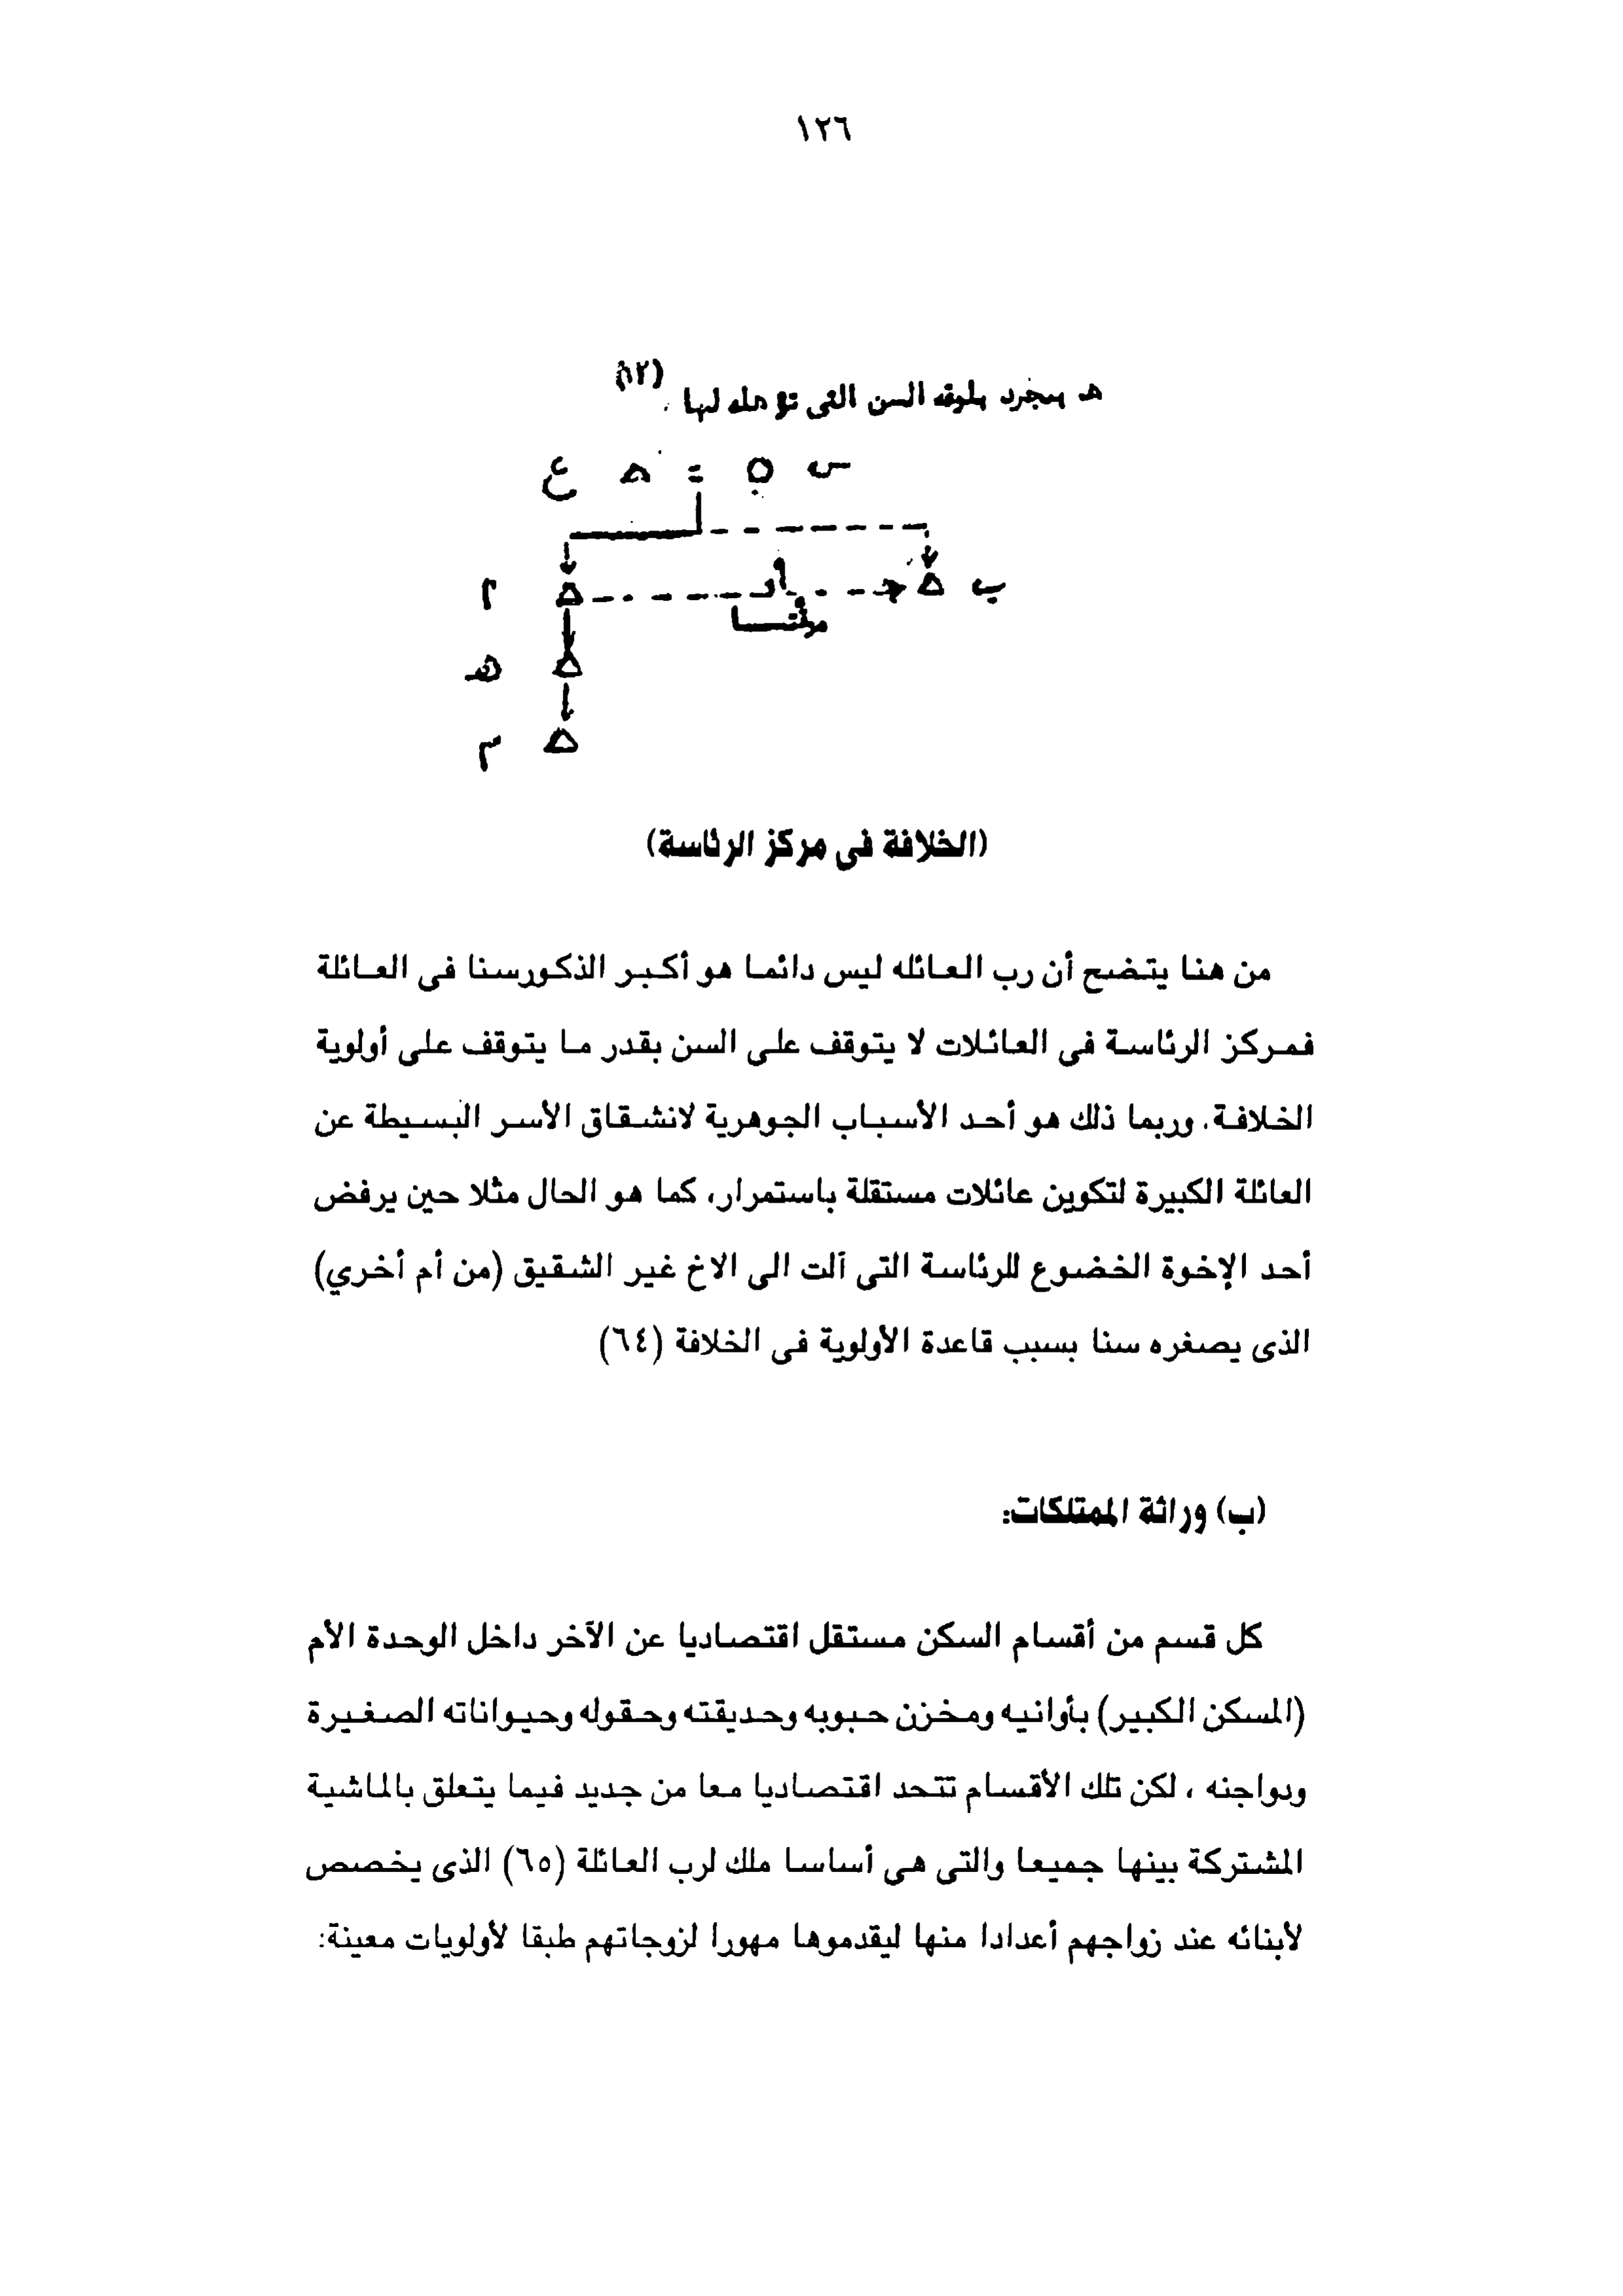 ١٢٦
هـ بمجرد بلوغه السن التى تؤهله لها .
ع = س
أو
أ ب
مؤقتــا
هـ
م
(الخلافة فى مركز الرئاسة)
من هنا يتضح أن رب العائله ليس دائما هو أكبر الذكورسنا فى العائلة
فمركز الرئاسة فى العائلات لا يتوقف على السن بقدر ما يتوقف على أولوية
الخلافة. وربما ذلك هو أحد الأسباب الجوهرية لانشقاق الأسر البسيطة عن
العائلة الكبيرة لتكوين عائلات مستقلة باستمرار، كما هو الحال مثلا حين يرفض
أحد الإخوة الخضوع للرئاسة التى آلت الى الاخ غير الشقيق (من أم أخري)
الذى يصغره سنا بسبب قاعدة الأولوية فى الخلافة (٦٤)
(ب) وراثة الممتلكات:
كل قسم من أقسام السكن مستقل اقتصاديا عن الآخر داخل الوحدة الأم
(المسكن الكبير) بأوانيه ومخزن حبوبه وحديقته وحقوله وحيواناته الصغيرة
ودواجنه ، لكن تلك الأقسام تتحد اقتصاديا معا من جديد فيما يتعلق بالماشية
المشتركة بينها جميعا والتى هى أساسا ملك لرب العائلة (٦٥) الذى يخصص
لأبنائه عند زواجهم أعدادا منها ليقدموها مهورا لزوجاتهم طبقا لأولويات معينة: